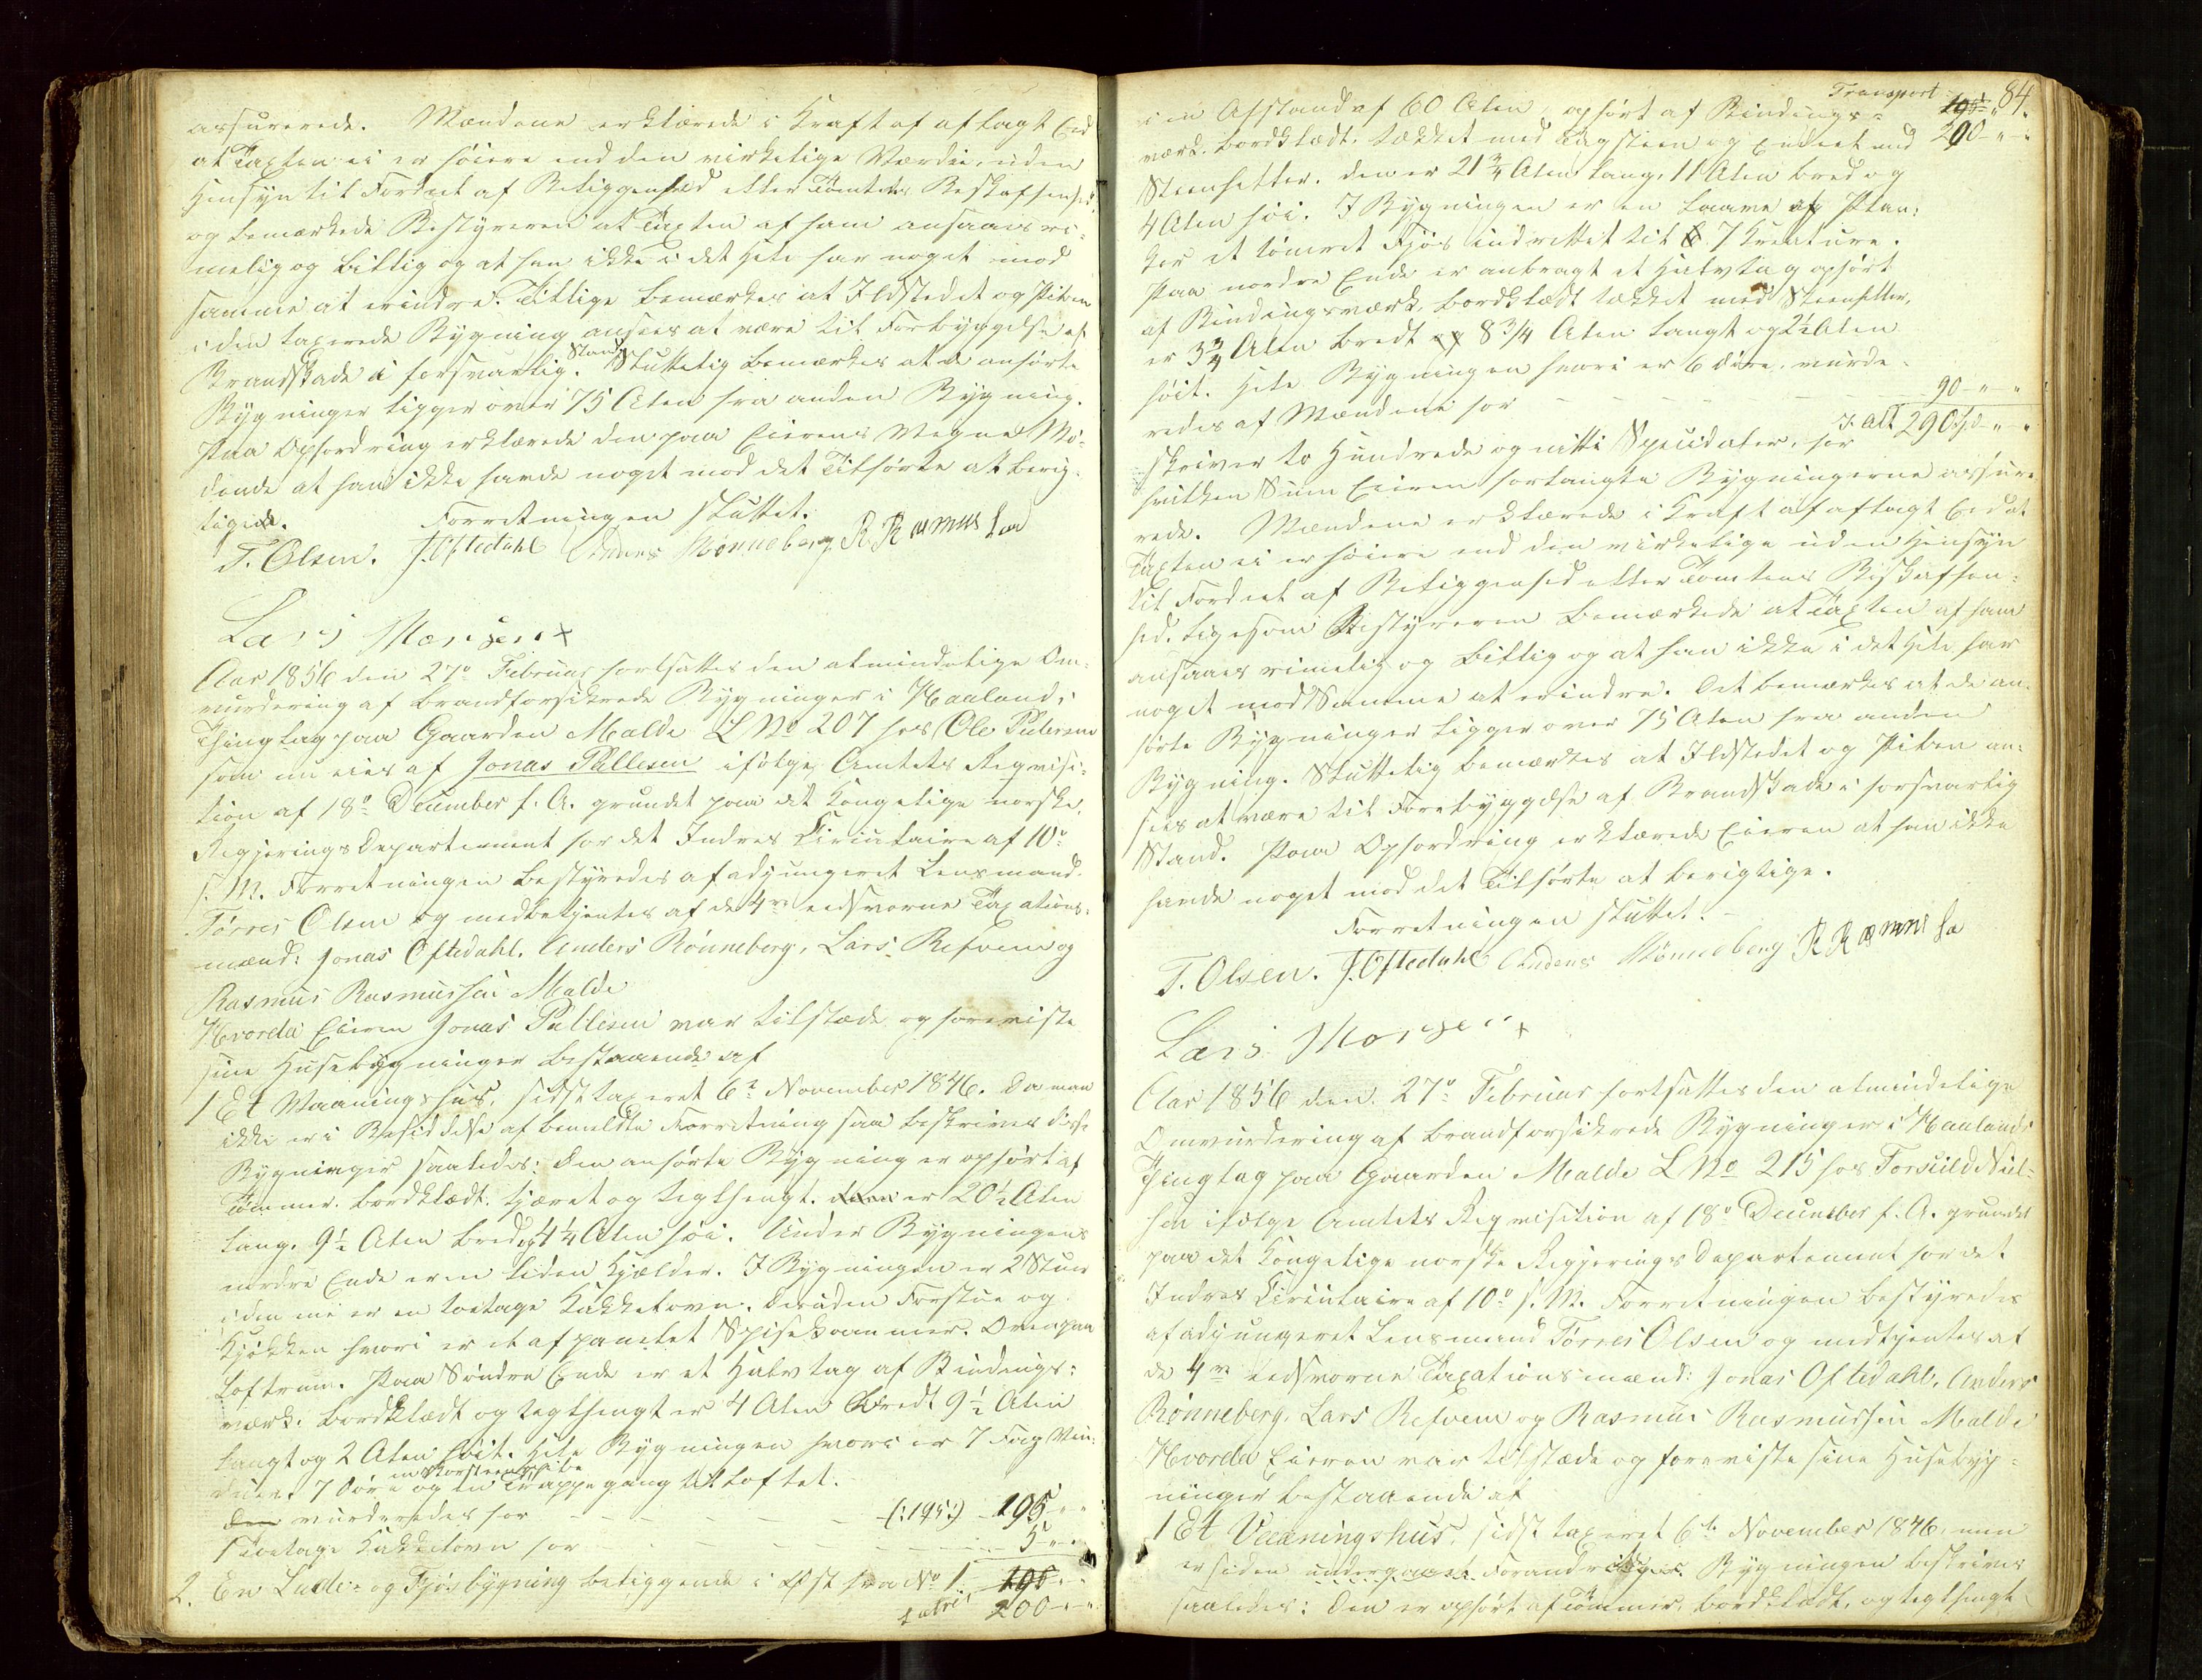 assurerede. Mændene erklærede i Kraft af aflagt Eed
at Taxten ei er høiere end den virkelige Værdie, uden
Hensyn til Fordeel af Beliggenhed eller Tomtens Beskaffenhed,
og bemærkede Bestyreren at Taxten af ham ansaaes ri-
melig og billig og at han ikke i det Hele har noget imod
samme at erindre. Tillige bemærkes at Ildstedet og Piben
i den taxerede Bygning ansees at være til Forbyggelse af
Brandskade i forsvarlig Stand. Sluttelig bemærkes at de anførte
Bygninger ligger over 75 Alen fra anden Bygning.
Paa Opfordring erklærede den paa Eierens Vegne Mø-
dende at han ikke havde noget mod det Tilførte at berig-
tigede.
Forretningen sluttet.
T. Olsen. J. Oftedahl Anders Rønneberg R. Rasmussen
Lars
Aar 1856 den 27de Februar fortsattes den almindelige Om-
vurdering af brandforsikrede Bygninger i Haalands
Thinglag paa Gaarden Malde L No 207 hos Ole Pedersen
som nu eies af Jonas Pallesen ifølge Amtets Reqvisi-
tion af 18de December f. A. grundet paa det Kongelige norske
Regjerings Departement for det Indres Circulaire af 10de
s. M. Forretningen bestyredes af adjungeret Lensmand
Tørres Olsen og medbetjentes af de 4re eedsvorne Taxations-
mænd: Jonas Oftedahl, Anders Rønneberg, Lars Refvem og
Rasmus Rasmussen Malde
Hvorda Eieren Jonas Pallesen var tilstæde og foreviste
sine Husebygninger bestaaende af
1 Et Vaaningshus, sidst taxeret 6te November 1846. Da man
ikke er i Besiddelse af bemeldte Forretning saa beskrives disse
Bygninger saaledes: Den anførte Bygning er opført af
Tømmer, bordklædt, tjæret og teglhængt. er 20½ Alen
lang, 9½ Alen bred og 4¼ Alen høi. Under Bygningens
nordre Ende er en liden Kjælder. I Bygningen er 2 Stuer
i den ene er en toetages Kakkelovn, desuden Forstue og
Kjøkken hvori er et afpanelet Spisekammer. Ovenpaa
Loftrum. Paa Søndre Ende er et Halvtag af Bindings-
værk, bordklædt og teglhængt er 4 Alen bredt 9½ Alen
langt og 2 Alen høit. Hele Bygningen hvori er 7 Fag Vin-
duer, 7 Døre en Skorsteenspibe og en Trappegang til Loftet.
den vurderedes for - - - - (: 195 :) 195 - " - "
1 toetages Kakkelovn for - - - - 5 - " - "
2. En Lade- og Fjøsbygning beliggende i Øst fra No 1 195 - "
Latris 200 - " - "
84.
Transport 195 - "
i en Afstand af 60 Alen, opført af Bindings-
værk, bordklædt, tækket med Tagsteen og Endeel med 200 - " - "
Steenheller. den er 21¾ Alen lang, 11 Alen bred og
4 Alen høi. I Bygningen er en Laave af Plan-
ker et tømret Fjøs indrettet til 7 Kreature.
Paa nordre Ende er anbragt et Halvtag opført
af Bindingsværk, bordklædt tækket med Steenheller,
er 3¾ Alen bredt og 8¾ Alen langt og 2½ Alen
høit. Hele Bygningen hvori er 6 Døre, vurde-
redes af Mændene for - - - - 90 - " - "
I Alt 290 Spd - " - "
skriver to Hundrede og nitti Speciedaler, for
hvilken Sum Eieren forlangte Bygningerne assure-
rede. Mændene erklærede i Kraft af aflagt Eed at
Taxten ei er høiere end den virkelige uden Hensyn
til Fordeel af Beliggenhed eller Tomtens Beskaffen-
hed, ligesom Bestyreren bemærkede at Taxten af ham
ansaaes rimelig og billig og at han ikke i det Hele har
noget mod Samme at erindre. Det bemærkes at de an-
førte Bygninger ligger over 75 Alen fra anden
Bygning. Sluttelig bemærkes at Ildstedet og Piben an-
sees at være til Forebyggelse af Brandskade i forsvarlig
Stand. Paa Opfordring erklærede Eieren at han ikke
havde noget mod det Tilførte at berigtige.
Forretningen sluttet.
T. Olsen. J. Oftedahl Anders Rønneberg R. Rasmussen
Lars
Aar 1856 den 27de Februar fortsattes den almindelige
Omvurdering af brandforsikrede Bygninger i Haalands
Thinglag paa Gaarden Malde L No 215 hos Torkild Niel-
sen ifølge Amtets Reqvisition af 18de December f. A. grundet
paa det Kongelige norske Regjerings Departement for det
Indres Circulaire af 10de s. M. Forretningen bestyredes
af adjungeret Lensmand Tørres Olsen og medtjentes af
de 4re eedsvorne Taxationsmænd: Jonas Oftedahl, Anders
Rønneberg, Lars Refvem og Rasmus Rasmussen Malde
Hvorda Eieren var tilstæde og foreviste sine Husebyg-
ninger bestaaende af
1 Et Vaaningshus, sidst taxeret 6te November 1846, men
er siden undergaaet Forandringer. Bygningen beskrives
saaledes: Den er opført af Tømmer, bordklædt, og teglhængt